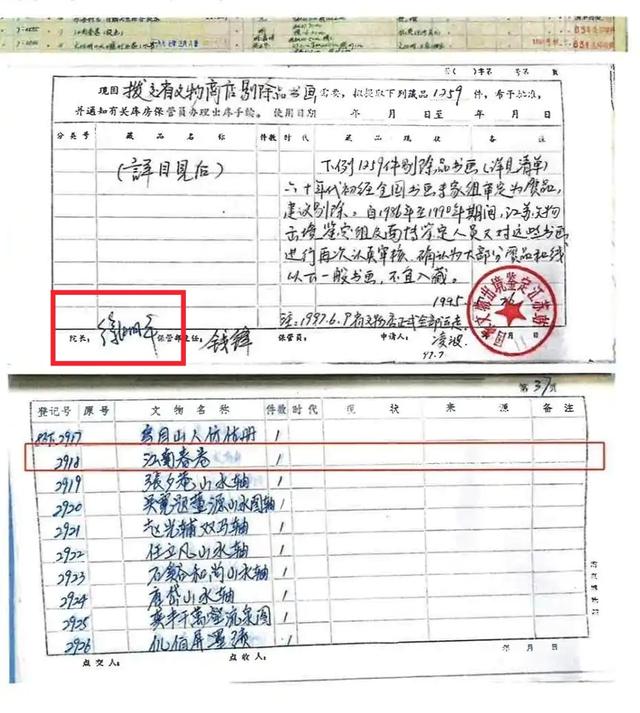 第 号
年 月 日
现因拨交有文物商店剔除品书画需要,拟提取下列藏品1259件,希予批准,
并通知有关库房保管员办理出库手续。 使用日期 年 月 日至 年 月 日
分类号 藏品名称 件数 时代 藏品现状 备注
(詳目見后)
下例1259件剔除品书画(详见清单)
六十年代初经全国书画专家组审定为贋品,
建议剔除。自1986年至1990年期间,江苏文物
出境鉴定组及南博鉴定人员又对这些书画
进行再次认真审核、确认为大部分贋品和线
以下一般书画,不宜入藏。
1995
注:1997.6.9有文物店正式全部运走
院长: 徐湖平 保管部主任: 钱锋 保管员: 申请人: 凌波
97.7.
国家文物出境鉴定江苏站
第 37 页
登记号 原号 文物名称 件数 时代 现状 来源 备注
2917 1
2918 江南春卷 1
2919 張夕庵山水轴 1
2920 吴寬题董源山水图轴 1
2921 赵光辅双马轴 1
2922 任立凡山水轴 1
2923 石谿和尚山水轴 1
2924 唐岱山水轴 1
2925 奚丰千萬壑流泉图 1
2926 1
点交人: 点收人: 年 月 日